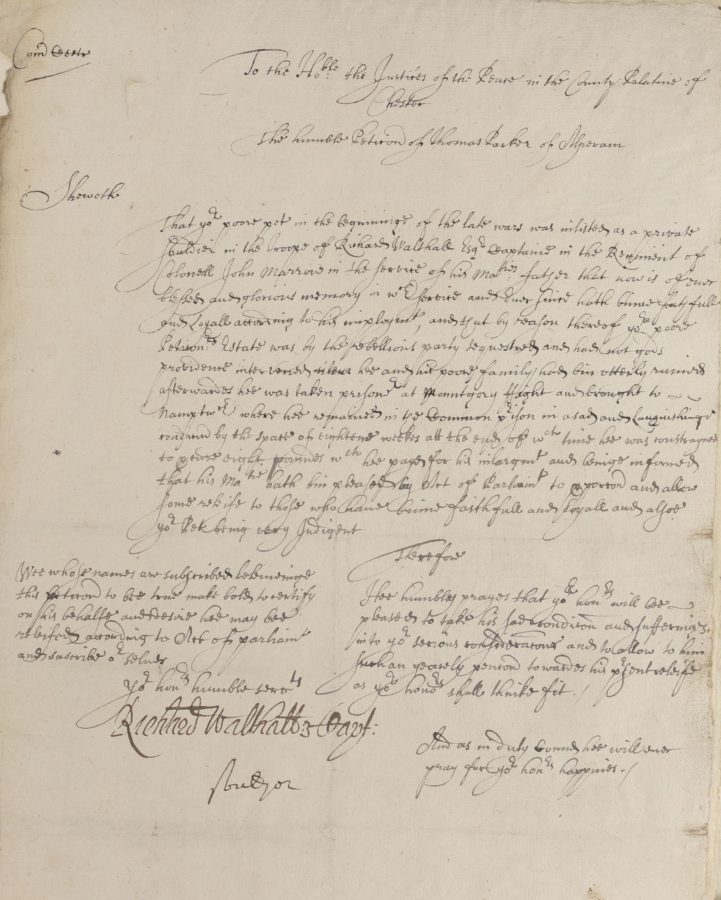 Com Cestr
To the Hoble: the Justices of the Peace in the County Palatine of
Chester
The humble Peticon of Thomas Parker of Alperam
Sheweth
That yor poore pet in the begininge of the late wars was inlisted as a private
Souldier in the troope of Richard Walthall Esqr Captaine in the Regiment of
Colonell John Marrow in the service of his Maties father that now is of ever
blessed and glorious memory in wch service and ever since hath binne faithfull
and Loyall according to his imploymt and that by reason thereof yor poore
Peticonrs Estate was by the rebellious party sequestred and had not gods
providence intervened hee and his poore family had bin utterly ruined
afterwardes hee was taken prisoner at Mountgory flight and brought to
Namptwch where hee remained in the Common prison in a sad and Languishinge
condicon by the space of eighteene weekes att the end off wch time hee was constrayned
to pay eight poundes wch hee payed for his inlargmt and beinge informed
that his Matie hath bin pleased by Act of Parliamt to and allow
some releife to those who have binne faithfull and Loyall and alsoe
yor Pet being very Indigent
Therefore
Hee humbly prayes that yor honrs will bee
pleased to take his sad condicon and sufferings
into yor serious consideracons and to allow to him
such an yearely pencon towardes his prsent releife
as yor honors shall thinke fit /
And as in duty bound hee will ever
pray for yor honrs happines /
Wee whose names are subscribed beleiveinge
this peticon to bee true make bold to certify
on his behalfe and desire hee may bee
releifed according to Act of parliamt
and subscribe or selves
Yor honrs humble servts
Richhed Walthall Capt: